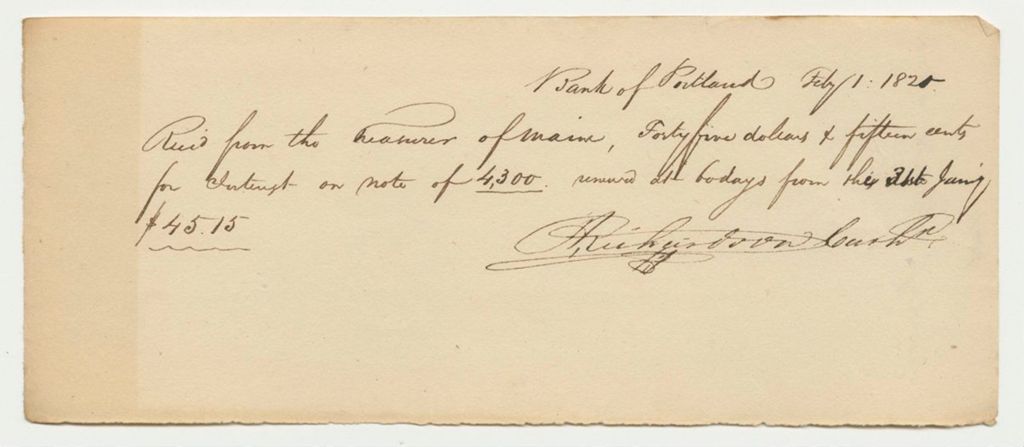 Bank of Portland Feby 1: 182
Recd from the Treasurer of Maine, Forty five dollars & fifteen cents
for Interest on note of 4,300. renewed at 60 days from the 31st Jany
$45.15
Richardson Cashr